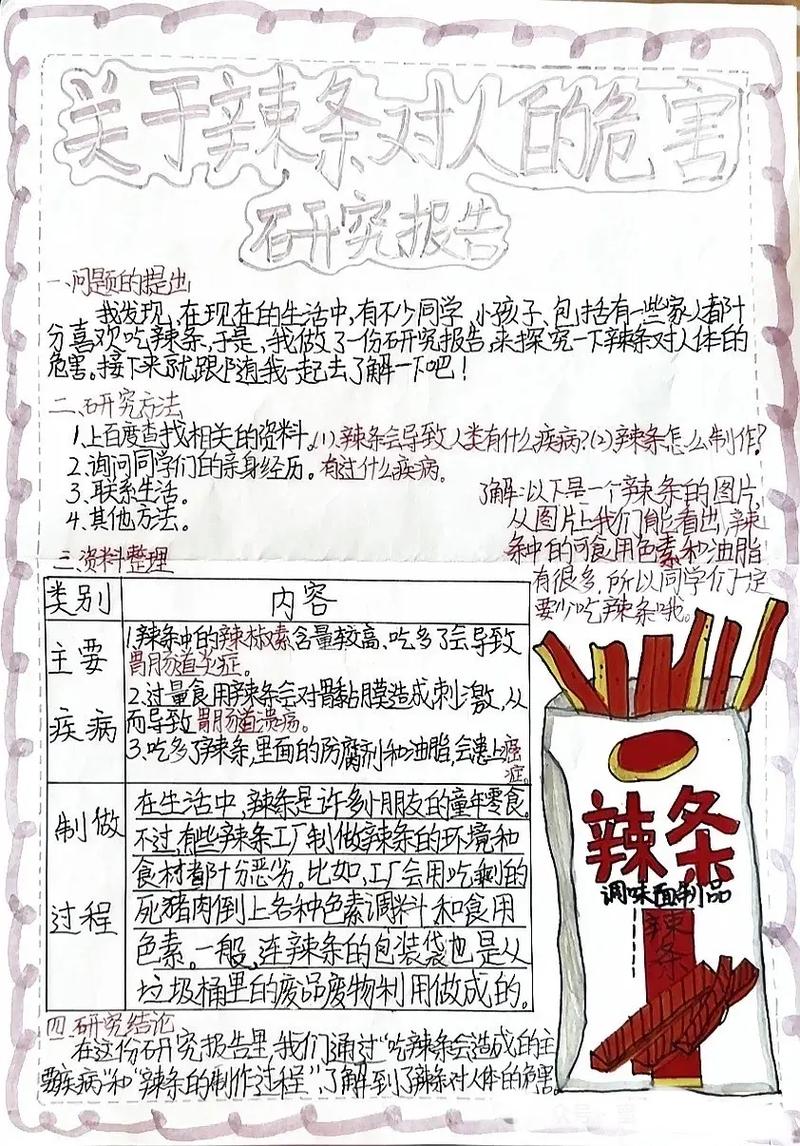 关于辣条对人的危害
研究报告
一.问题的提出
我发现,在现在的生活中,有不少同学,小孩子、包括有一些家人都十
分喜欢吃辣条.于是,我做了一份研究报告,来探究一下辣条对人体的
危害。接下来就跟随我一起去了解一下吧!
二.研究方法
1.上百度查找相关的资料。(1)辣条会导致人类有什么疾病?(2)辣条怎么制作?
2.询问同学们的亲身经历。有过什么疾病。
3.联系生活。
4.其他方法。
了解:以下是一个辣条的图片,
从图片上我们能看出,辣
条中的可食用色素和油脂
有很多,所以同学们一定
要少吃辣条哦。
三.资料整理
类别 内容
主要
疾病
1.辣条中的辣椒素含量较高、吃多了会导致
胃肠道炎症。
2.过量食用辣条会对胃黏膜造成刺激,从
而导致胃肠道溃疡。
3.吃多了辣条,里面的防腐剂和油脂,会患上癌
症。
制做
过程
在生活中,辣条是许多小朋友的童年零食。
不过,有些辣条工厂制做辣条的环境和
食材都十分恶劣。比如,工厂会用吃剩的
死猪肉倒上各种色素调料和食用
色素。一般,连辣条的包装袋也是从
垃圾桶里的废品废物利用做成的。
辣条
调味面制品
辣
条
四.研究结论
在这份研究报告里,我们通过“吃辣条会造成的主
要疾病”和“辣条的制作过程”,了解到了辣条对人体的危害。